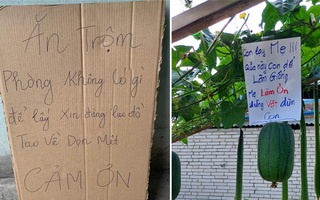 Ăn Trộm
Phòng Không Có gì
để lấy Xin đừng lục đồ
Tao Về Dọn Mệt
CẢM ƠN
Con lạy Mẹ !!!
Quả này Con để
Làm Giống
Mẹ Làm Ơn
đừng Vặt dùm
Con